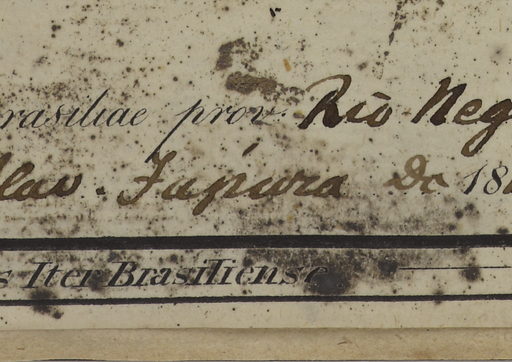 rasiliae prov. Rio Neg
Japura Dc 18
s Iter Brasiliense